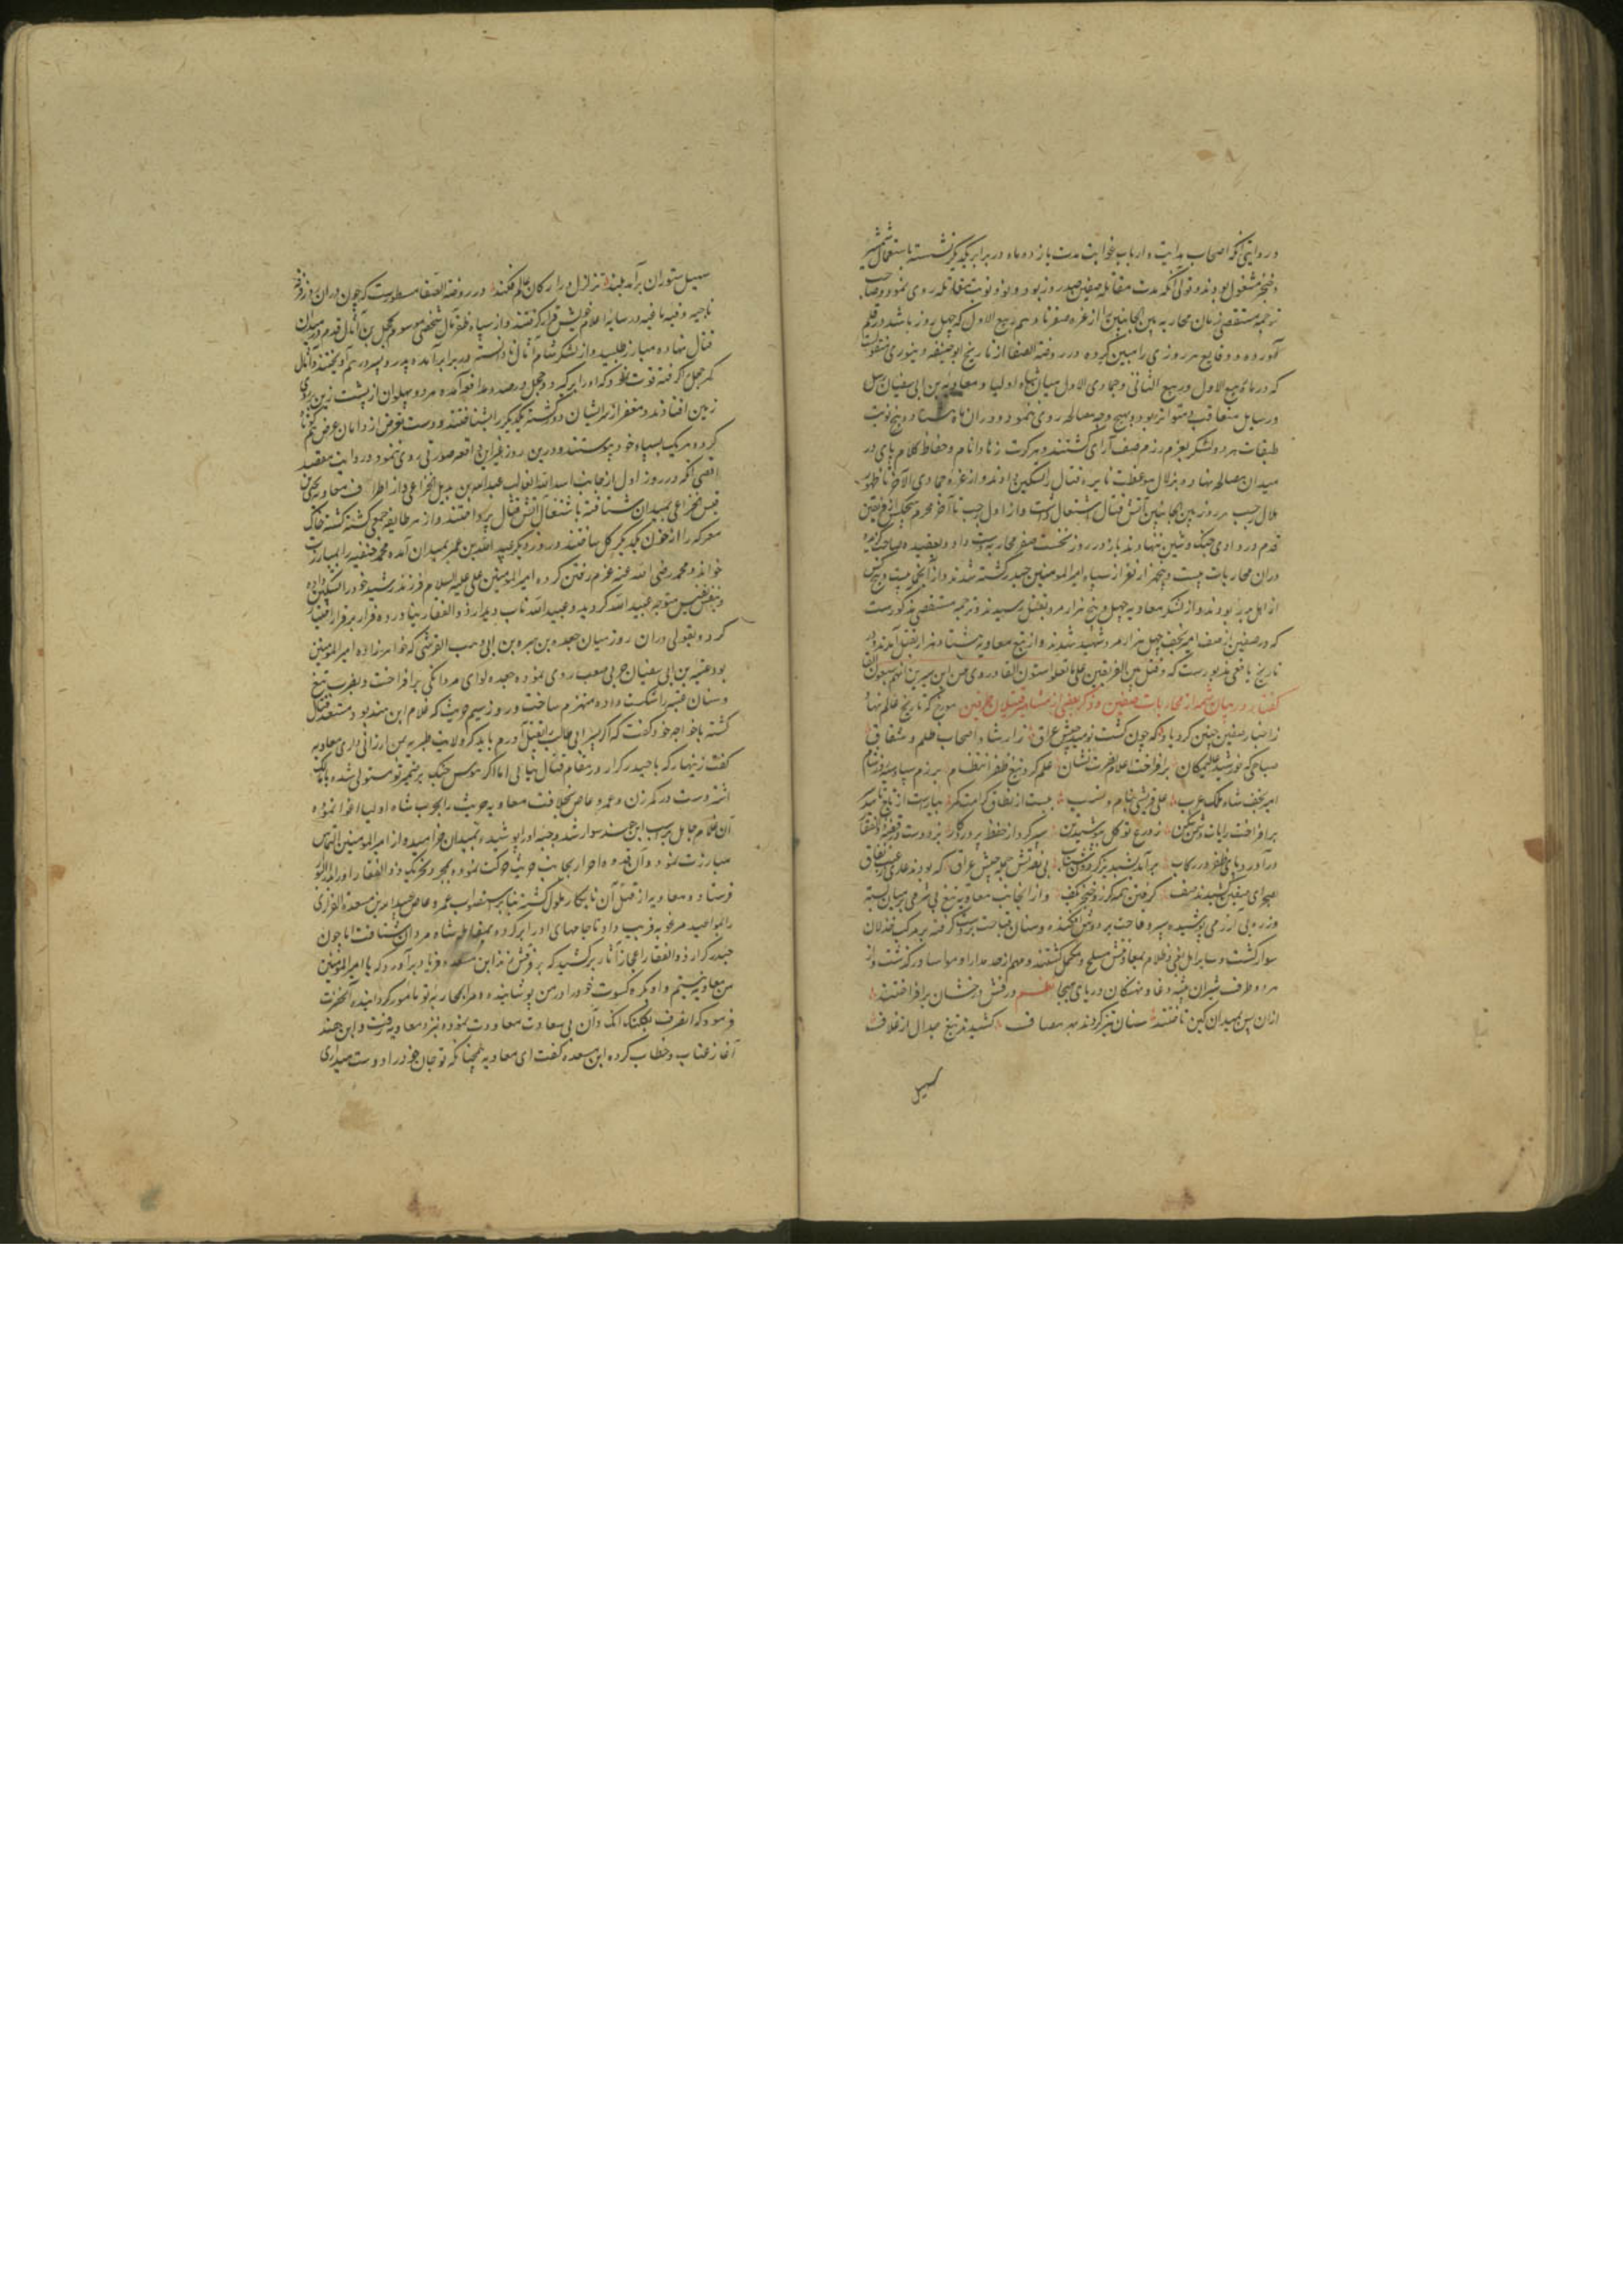 در روایتی آنکه اصحاب هدایت و ارباب غوایت مدت یازده ماه در برابر یکدیگر نشسته باستعمال شمشیر
و خنجر مشغول بودند و قولی آنکه مدت مقاتله صفین صد روز بود و نود نوبت مقاتله روی نمود و صاحب
ترجمه مستقصی زمان محاربه بین الجانبین را از غره صفر تا دهم ربیع الاول که چهل روز باشد در قلم
آورده و وقایع هر روزی را مبین کرده در روضة الصفا از تاریخ ابوحنیفه دینوری منقولست
که در ماه ربیع الاول و ربیع الثانی و جمادی الاول میان شاه اولیا و معاویة بن ابی سفیان رسل
و رسایل متعاقب و متواتر بود و بهیچ وجه مصالحه روی ننمود و در آن ماه هشتاد و پنج نوبت
طبقات هر دو لشکر بعزم رزم صف آرای گشتند و هر کرت زهاد انام و حفاظ کلام پای در
میدان مصالحه نهاده بزلال موعظت نایره قتال را تسکین دادند و از غره جمادی الآخر تا ظهور
هلال رجب هر روز بین الجانبین آتش قتال اشتعال داشت و از اول رجب تا آخر محرم هیچکس از فریقین
قدم در وادی جنگ و شین ننهادند باز در روز نخست صفر محاربه دست داد و بعقیده صاحب گزیده
در آن محاربات بیست و پنج هزار نفر از سپاه امیرالمومنین حیدر کشته شدند و از آنجمله بیست و پنج کس
از اهل بدر بودند و از لشکر معاویه چهل و پنج هزار مرد بقتل رسیدند و در ترجمه مستقصی مذکورست
که در صفین از صف امیر نجف چهل هزار مرد شهید شدند و از تبع معاویه هشتاد هزار بقتل آمدند و در
تاریخ یافعی مذبورست که و قتل بین الفریقین علی ما نقلوا ستون الفا و روی عن ابن سیرین انهم سبعون الفا
گفتار در بیان شمه از محاربات صفین و ذکر بعضی از مشاهیر قتیلان طرفین مورخ که تاریخ عالم نهاد
ز اخبار صفین چنین کرد یاد که چون گشت نومید جیش عراق ز ارشاد اصحاب ظلم و شقاق
صباحی که خورشید علیین مکان برافراخت اعلام نصرت نشان علم کرد تیغ ظفر انتظام برزم سپاه سیه روز شام
امیر نجف شاه ملک عرب علی قریشی نام و نسب ببست از نطاق کرامت کمر بیاراست از تاج تایید سر
برافراخت رایات دشمن شکن ز درع توکل بپوشید تن سپر کرد از حفظ پروردگار بزد دست در قبضه ذوالفقار
درآورد پای ظفر در رکاب برآمد شبدیز گردون شتاب پی نصرتش جمله جیش عراق که بودند عاری ز عیب نفاق
بصحرای صفین کشیدند صف گرفتن همه گرز و خنجر بکف و از آنجانب معاویه تیغ بی شرمی بر میان بسته
و زره بی آزرمی پوشیده سپر وقاحت بر دوش افکنده و سنان قباحت بدست گرفته بر مرکب خذلان
سوار گشت و سایر اهل بغی و ظلام بمعاونتش مسلح و مکمل گشتند و مهم از حد مدارا و مواسا درگذشت و از
هر دو طرف شیران بیشه دغا و نهنگان دریای هیجا نظم درفش درخشان برافراختند
از آن پس بمیدان کین تاختند سنان تیز کردند بهر مصاف کشیدند تیغ جدال از غلاف
صهیل
صهیل ستوران برآمد بلند تزلزل در ارکان عالم فکند در روضة الصفا مسطورست که چون در آن روز فرقه
ناجیه و فیه باغیه در سایه اعلام خویش قرار گرفتند و از سپاه ظفر مآل شخصی موسوم بحجل بن آثال قدم در میدان
قتال نهاده مبارز طلبید و از لشکر شام آثال نادانسته در برابر آمده پدر و پسر در هم آویختند و آثال
کمر حجل گرفته قوت نمود که او را برگیرد و حجل در صدد مدافعه آمده هر دو پهلوان از پشت زین بروی
زمین افتادند و مغفر از سر ایشان دور گشته یکدیگر را بشناختند و دست تعرض از دامان عرض هم کوتاه
کرده هر یک بسپاه خود پیوستند و درین روز غیر این واقعه صورتی روی ننمود و روایت مقصد
اقصی آنکه در روز اول از جانب اسد الله الغالب عبدالله بن بدیل الخزاعی و از اطراف معاویه یحیی بن
قیس نخعی بمیدان شتافته باشتعال آتش قتال پرداختند و از هر طایفه جمعی کشته گشته خاک
معرکه را از خون یکدیگر گل ساختند و روز دیگر عبیدالله بن عمر بمیدان آمده محمد حنفیه را بمبارزت
خواند و محمد رضی الله عنه عزم رفتن کرده امیرالمومنین علی علیه السلام فرزند رشید خود را تسکین داده
و بنفس نفیس متوجه عبیدالله گردید و عبیدالله تاب دیدار ذوالفقار نیاورده فرار بر قرار اختیار
کرد و بقولی در آن روز میان جعده بن هبیره بن ابی وهب القرشی که خواهرزاده امیرالمومنین
بود و عتبه بن ابی سفیان حربی صعب روی نموده جعده لوای مردانگی برافراخت و بضرب تیغ
و سنان عتبه را شکست داده منهزم ساخت و در روز سیم حریث که غلام ابن هند بود مستعد قتال
گشته با خواجه خود گفت که اگر پسر ابی طالب را بقتل آورم باید که ولایت طبریه بمن ارزانی داری معاویه
گفت زینهار که با حیدر کرار در مقام قتال نیائی اما اگر هوس جنگ بر ضمیر تو مستولی شده با مالک
اشتر دست در کمر زن و عمرو عاص بخلافت معاویه حریث را بحرب شاه اولیا اغوا نموده
آن غلام جاهل بر اسب ابن هند سوار شد و جبه او را پوشیده بمیدان خرامیده و از امیرالمومنین التماس
مبارزت نمود و آن قدوه احرار بجانب حریث حرکت نموده بمجرد تحریک ذوالفقار او را بدارالبوار
فرستاد و معاویه از قتل آن نابکار ملول گشته بنابر استصواب عمرو عاص عبدالله بن مسعدة الفزاری
را بمواعید مرغوبه فریب داد تا جامهای او را در بر کرده بمقاتله شاه مردان شتافت اما چون
حیدر کرار ذوالفقار اعجاز آثار برکشید که بر فرقش زند ابن مسعده فریاد برآورد که یا امیرالمومنین
من معاویه نیستم و او بکره کسوت خود را در من پوشانیده و مرا بمحاربه تو مامور گردانیده آنحضرت
فرمود که انصرف ثکلتک امک و آن بی سعادت معاودت نموده نزد معاویه رفت و ابن هند
آغاز عتاب و خطاب کرده ابن مسعده گفت ای معاویه همچنانکه تو جان خود را دوست میداری